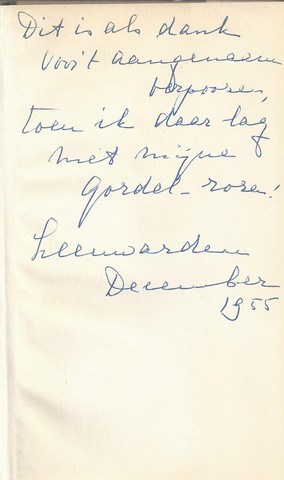 Dit is als dank
voor't aangenaam
verpoozen,
toen ik daar lag
met mijne
Gordel-rose!
Leeuwarden
December
1955